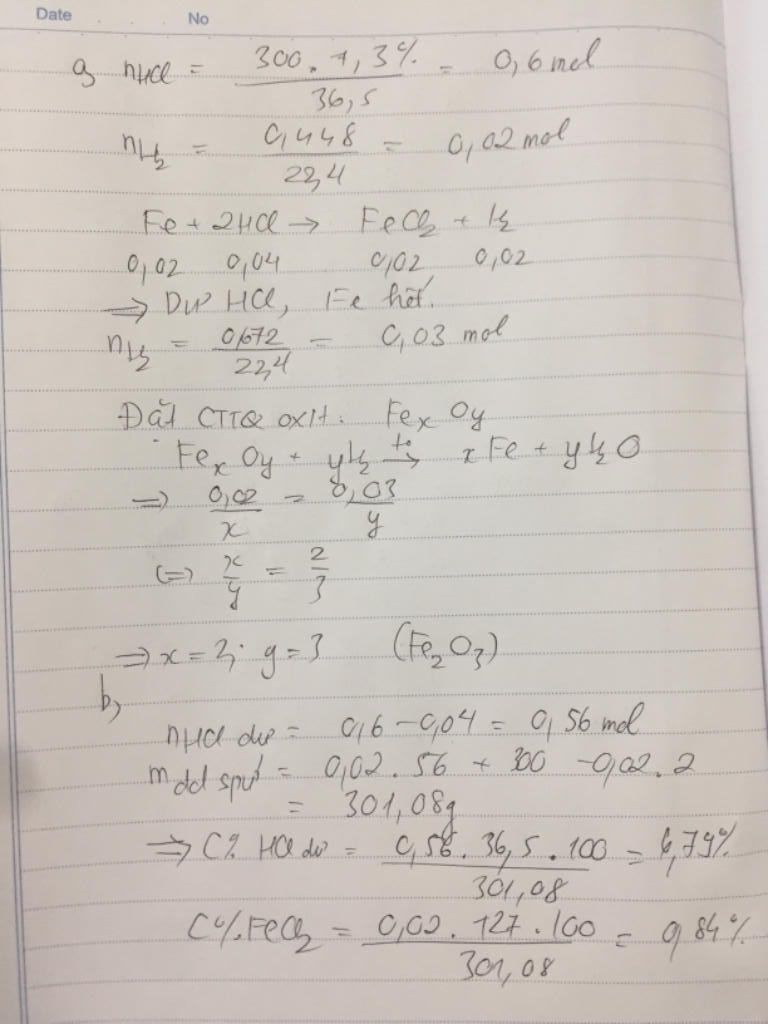 Date No
a, nHCl = 300.7,3% / 36,5 = 0,6 mol
nH₂ = 0,448 / 22,4 = 0,02 mol
Fe + 2HCl → FeCl₂ + H₂
0,02 0,04 0,02 0,02
⇒ Dư HCl, Fe hết.
nH₂ = 0,672 / 22,4 = 0,03 mol
Đặt CTTQ oxit: FexOy
FexOy + yH₂ t° → xFe + yH₂O
⇒ 0,02 / x = 0,03 / y
(=) x / y = 2 / 3
⇒ x = 2; y = 3 (Fe₂O₃)
b,
nHCl dư = 0,6 - 0,04 = 0,56 mol
mdd spứ = 0,02.56 + 300 - 0,02.2
= 301,08g
⇒ C% HCl dư = 0,56.36,5.100 / 301,08 = 6,79%
C%FeCl₂ = 0,02.127.100 / 301,08 = 0,84%